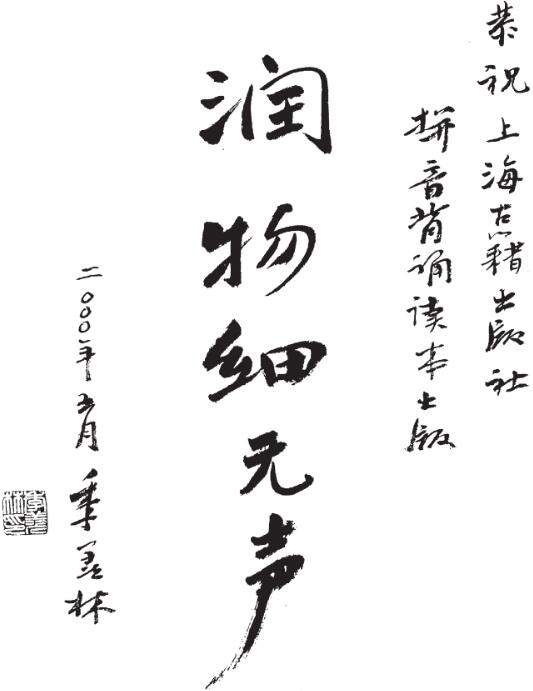 恭祝上海古籍出版社
拼音背诵读本出版
润物细无声
二〇〇〇年五月 季羡林